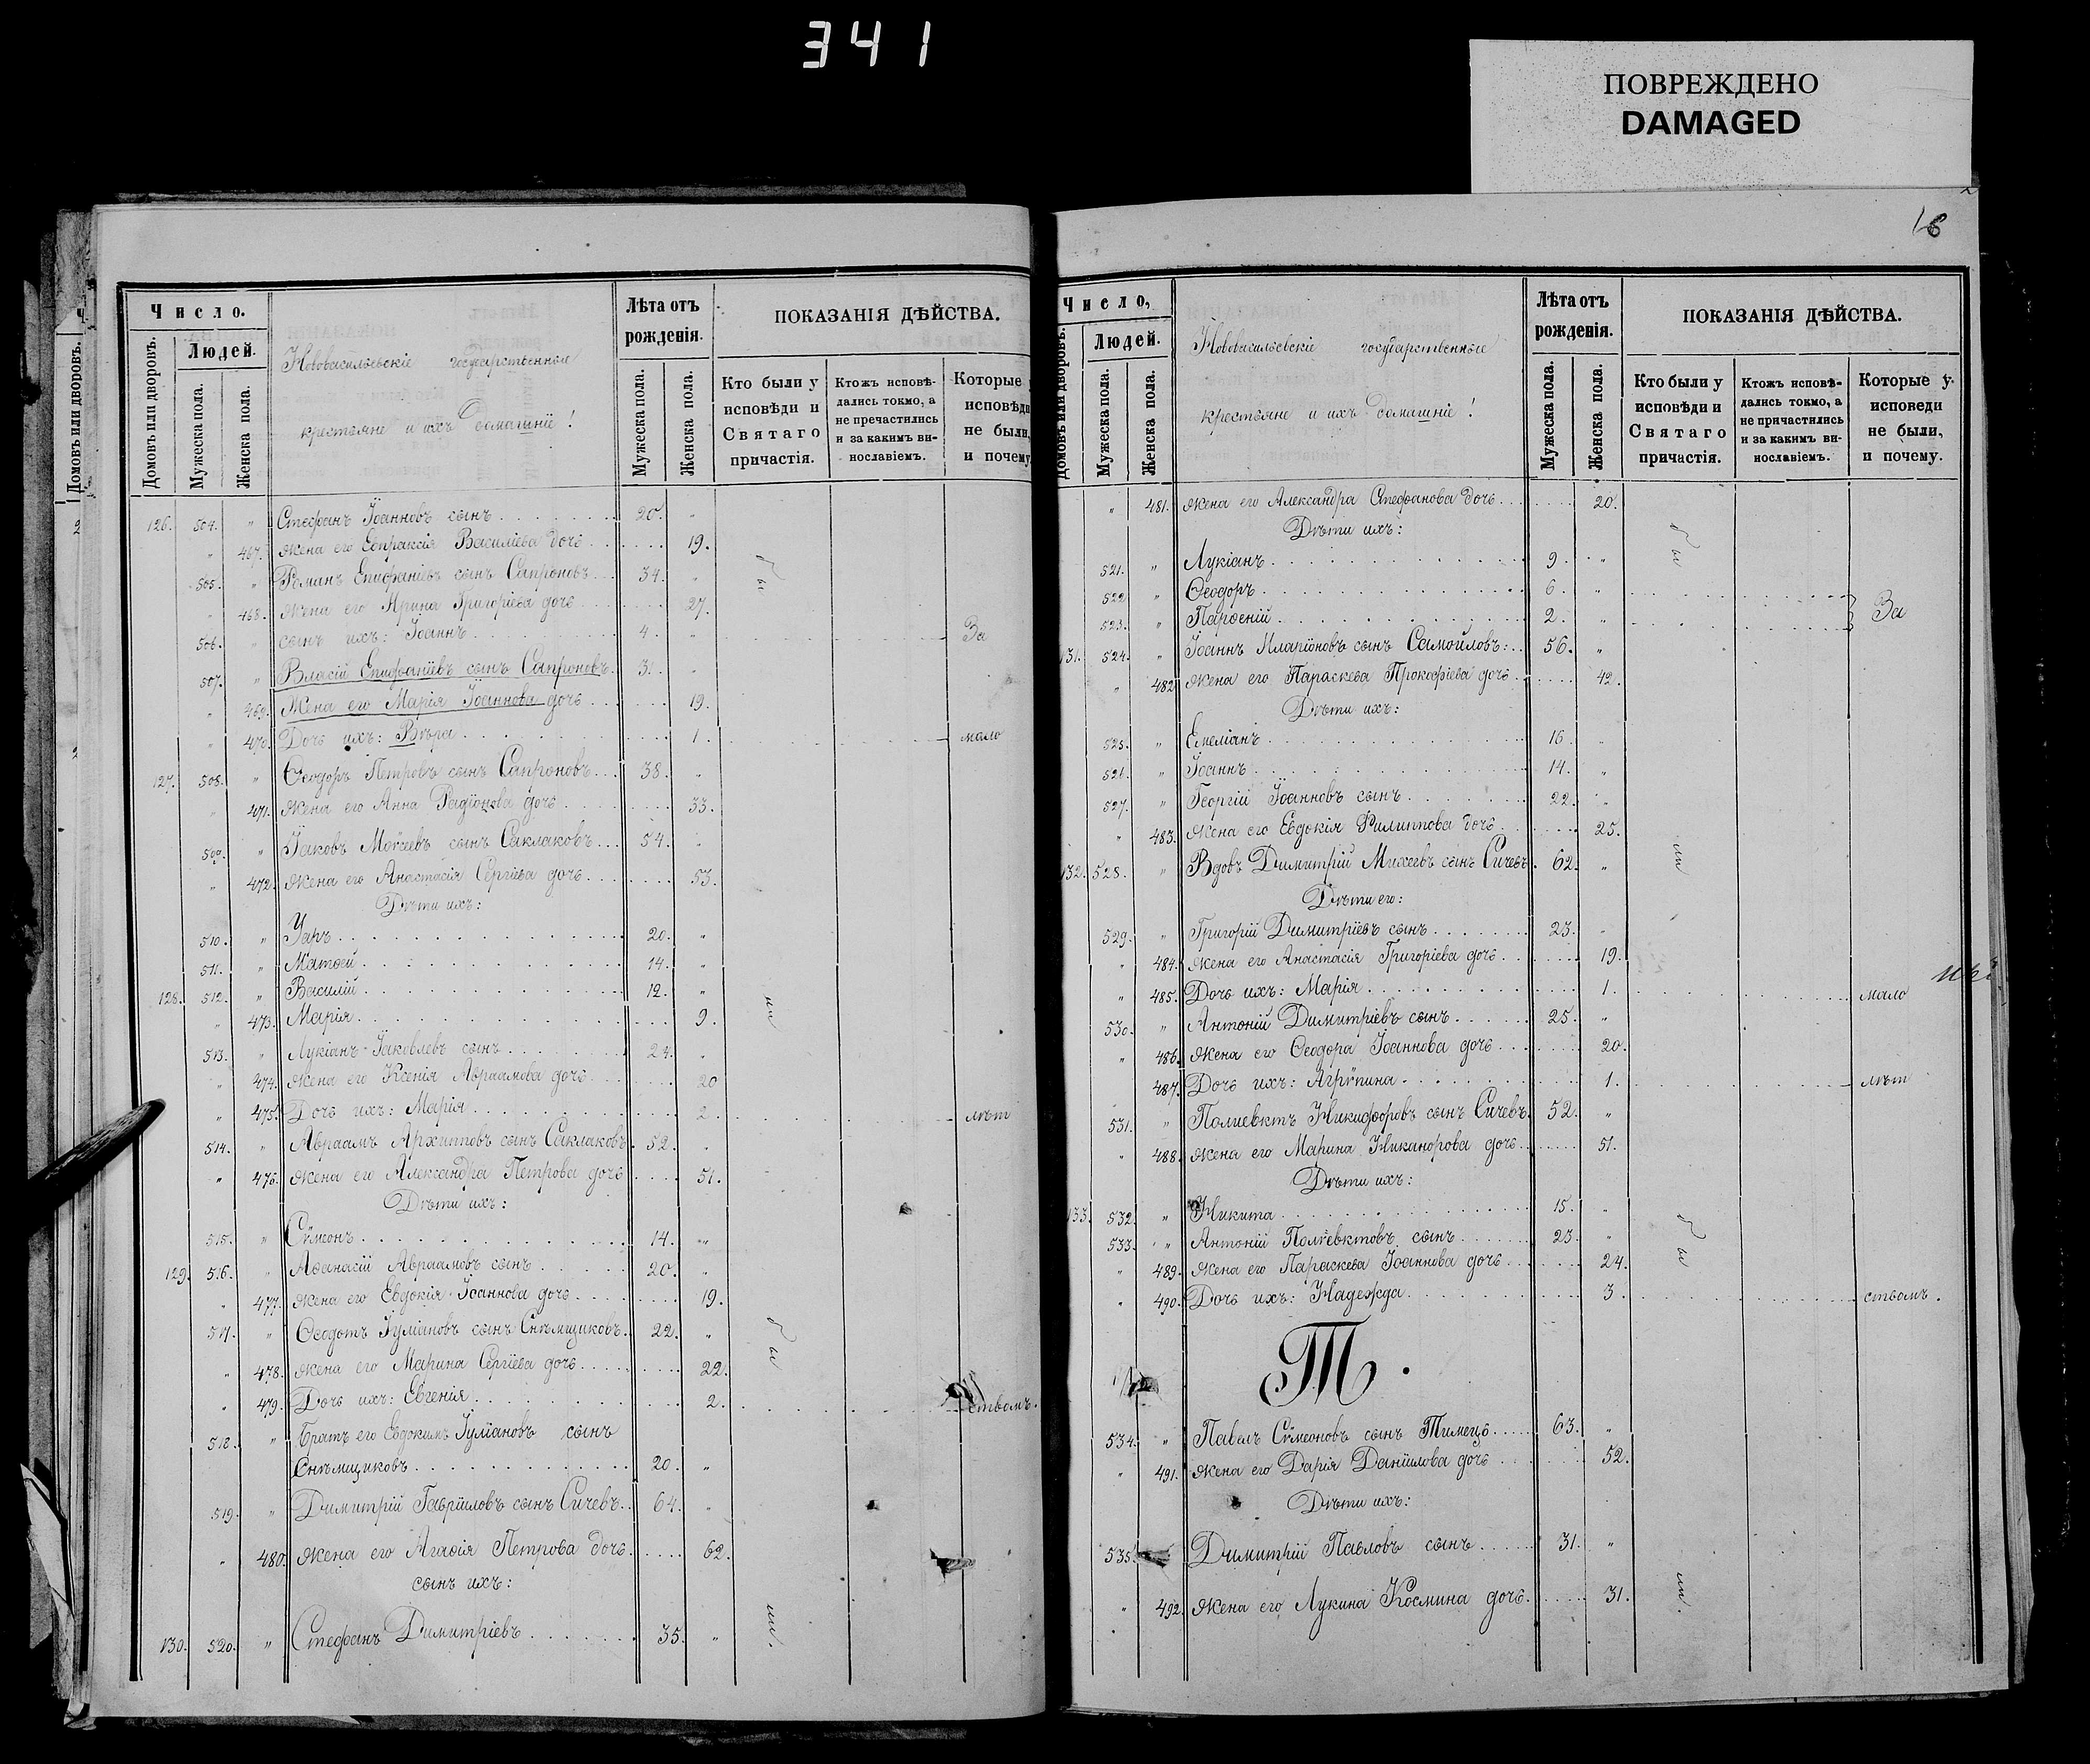 341
ПОВРЕЖДЕНО
DAMAGED
Число.
Домовъ или дворовъ.
Людей.
Мужеска пола.
Женска пола.
Нововасильевскіе государственные
крестьяне и ихъ домашніе!
Лѣта отъ рожденія.
Мужеска пола.
Женска пола.
ПОКАЗАНІЯ ДѢЙСТВА.
Кто были у исповѣди и Святаго причастія.
Ктожъ исповѣдались токмо, а не пречастились и за какимъ винославіемъ.
Которые исповѣди не были, и почему
126. 504. " Стефанъ Іоанновъ сынъ 20. "
" 467. жена его Евпраксія Василіева дочь 19.
505. " Романъ Епифаніевъ сынъ Сапроновъ 34. " бы
" 468. жена его Ирина Григоріева дочь 27.
506. " сынъ ихъ: Іоаннъ 4. " За
507. " Власій Епифаніевъ сынъ Сапроновъ 31. "
" 469. Жена его Марія Іоаннова дочь 19.
" 470. Дочь ихъ: Вѣра 1. мало
127. 508. " Ѳеодоръ Петровъ сынъ Сапроновъ 38. "
" 471. жена его Анна Радіонова дочь 33.
509. " Іаковъ Моѵсеевъ сынъ Саклаковъ 54. "
" 472. жена его Анастасія Сергіева дочь 53.
Дѣти ихъ:
510. " Уаръ 20. "
511. " Матѳей 14. "
128. 512. " Василій 12. "
" 473. Марія 9. ли
513. " Лукіанъ Іаковлевъ сынъ 24. "
" 474. жена его Ксенія Авраамова дочь 20
" 475. Дочь ихъ: Марія 2. лѣт
514. " Авраамъ Архипповъ сынъ Саклаковъ 52. "
" 476. жена его Александра Петрова дочь 51.
Дѣти ихъ:
515. " Сѵмеонъ 14. "
129. 516. " Аѳанасій Авраамовъ сынъ 20. "
" 477. жена его Евдокія Іоаннова дочь 19.
517. " Ѳеодотъ Іуліановъ сынъ Снѣмщиковъ 22. " бы
" 478. жена его Марина Сергіева дочь 22.
" 479. Дочь ихъ: Евгенія 2. ствомъ.
518. " Братъ его Евдокимъ Іуліановъ сынъ
Снѣмщиковъ 20. "
519. " Димитрій Гавріиловъ сынъ Сичевъ 64. "
" 480. жена его Агаѳія Петрова дочь 62.
сынъ ихъ: ли.
130. 520. " Стефанъ Димитріевъ 35. "
16
Число,
Домовъ или дворовъ.
Людей.
Мужеска пола.
Женска пола.
Нововасильевскіе государственные
крестьяне и ихъ домашніе!
Лѣта отъ рожденія.
Мужеска пола.
Женска пола.
ПОКАЗАНІЯ ДѢЙСТВА.
Кто были у исповѣди и Святаго причастія.
Ктожъ исповѣдались токмо, а не причастились и за какимъ винославіемъ.
Которые у исповеди не были, и почему.
" 481. жена его Александра Стефанова дочь 20.
Дѣти ихъ: бы
521. " Лукіанъ 9. "
522 " Ѳеодоръ 6. "
523. " Парѳеній 2. " За
131. 524. " Іоаннъ Иларіоновъ сынъ Самойловъ: 56. "
" 482 жена его Параскева Прокофіева дочь 42.
Дѣти ихъ:
525. " Емеліанъ 16. "
526. " Іоаннъ 14. "
527. " Георгій Іоанновъ сынъ 22. "
" 483. жена его Евдокія Филиппова дочь 25.
132. 528. " Вдовъ Димитрій Михеевъ сынъ Сичевъ 62. " ли
Дѣти его:
529. " Григорій Димитріевъ сынъ 23. "
" 484. жена его Анастасія Григоріева дочь 19.
" 485. Дочь ихъ: Марія 1. мало
530. " Антоній Димитріевъ сынъ 25. "
" 486. жена его Ѳеодора Іоаннова дочь 20.
" 487. Дочь ихъ: Агрѵпина 1. лѣт
531. " Полиевктъ Никифоровъ сынъ Сичевъ 52. "
" 488. жена его Марина Никанорова дочь 51.
Дѣти ихъ:
133. 532. " Никита 15. "
533. " Антоній Поліевктовъ сынъ 23. " бы
" 489. жена его Параскева Іоаннова дочь 24.
" 490. Дочь ихъ: Надежда 3. ствомъ.
Т.
534. " Павелъ Сѵмеоновъ сынъ Тимецъ 63. "
" 491. жена его Дарія Даніилова дочь 52.
Дѣти ихъ:
535. Димитрій Павловъ сынъ 31. "
" 492. жена его Лукина Космина дочь 31. ли.